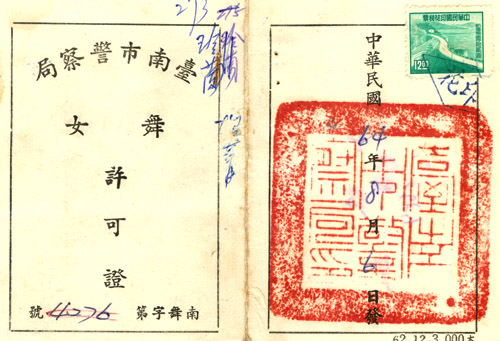 臺南市警察局
舞女
許可證
南舞字第4276號
中華民國64年8月6日發
中華民國印花稅票
12.00
臺南市警察局印
62.12.3,000本